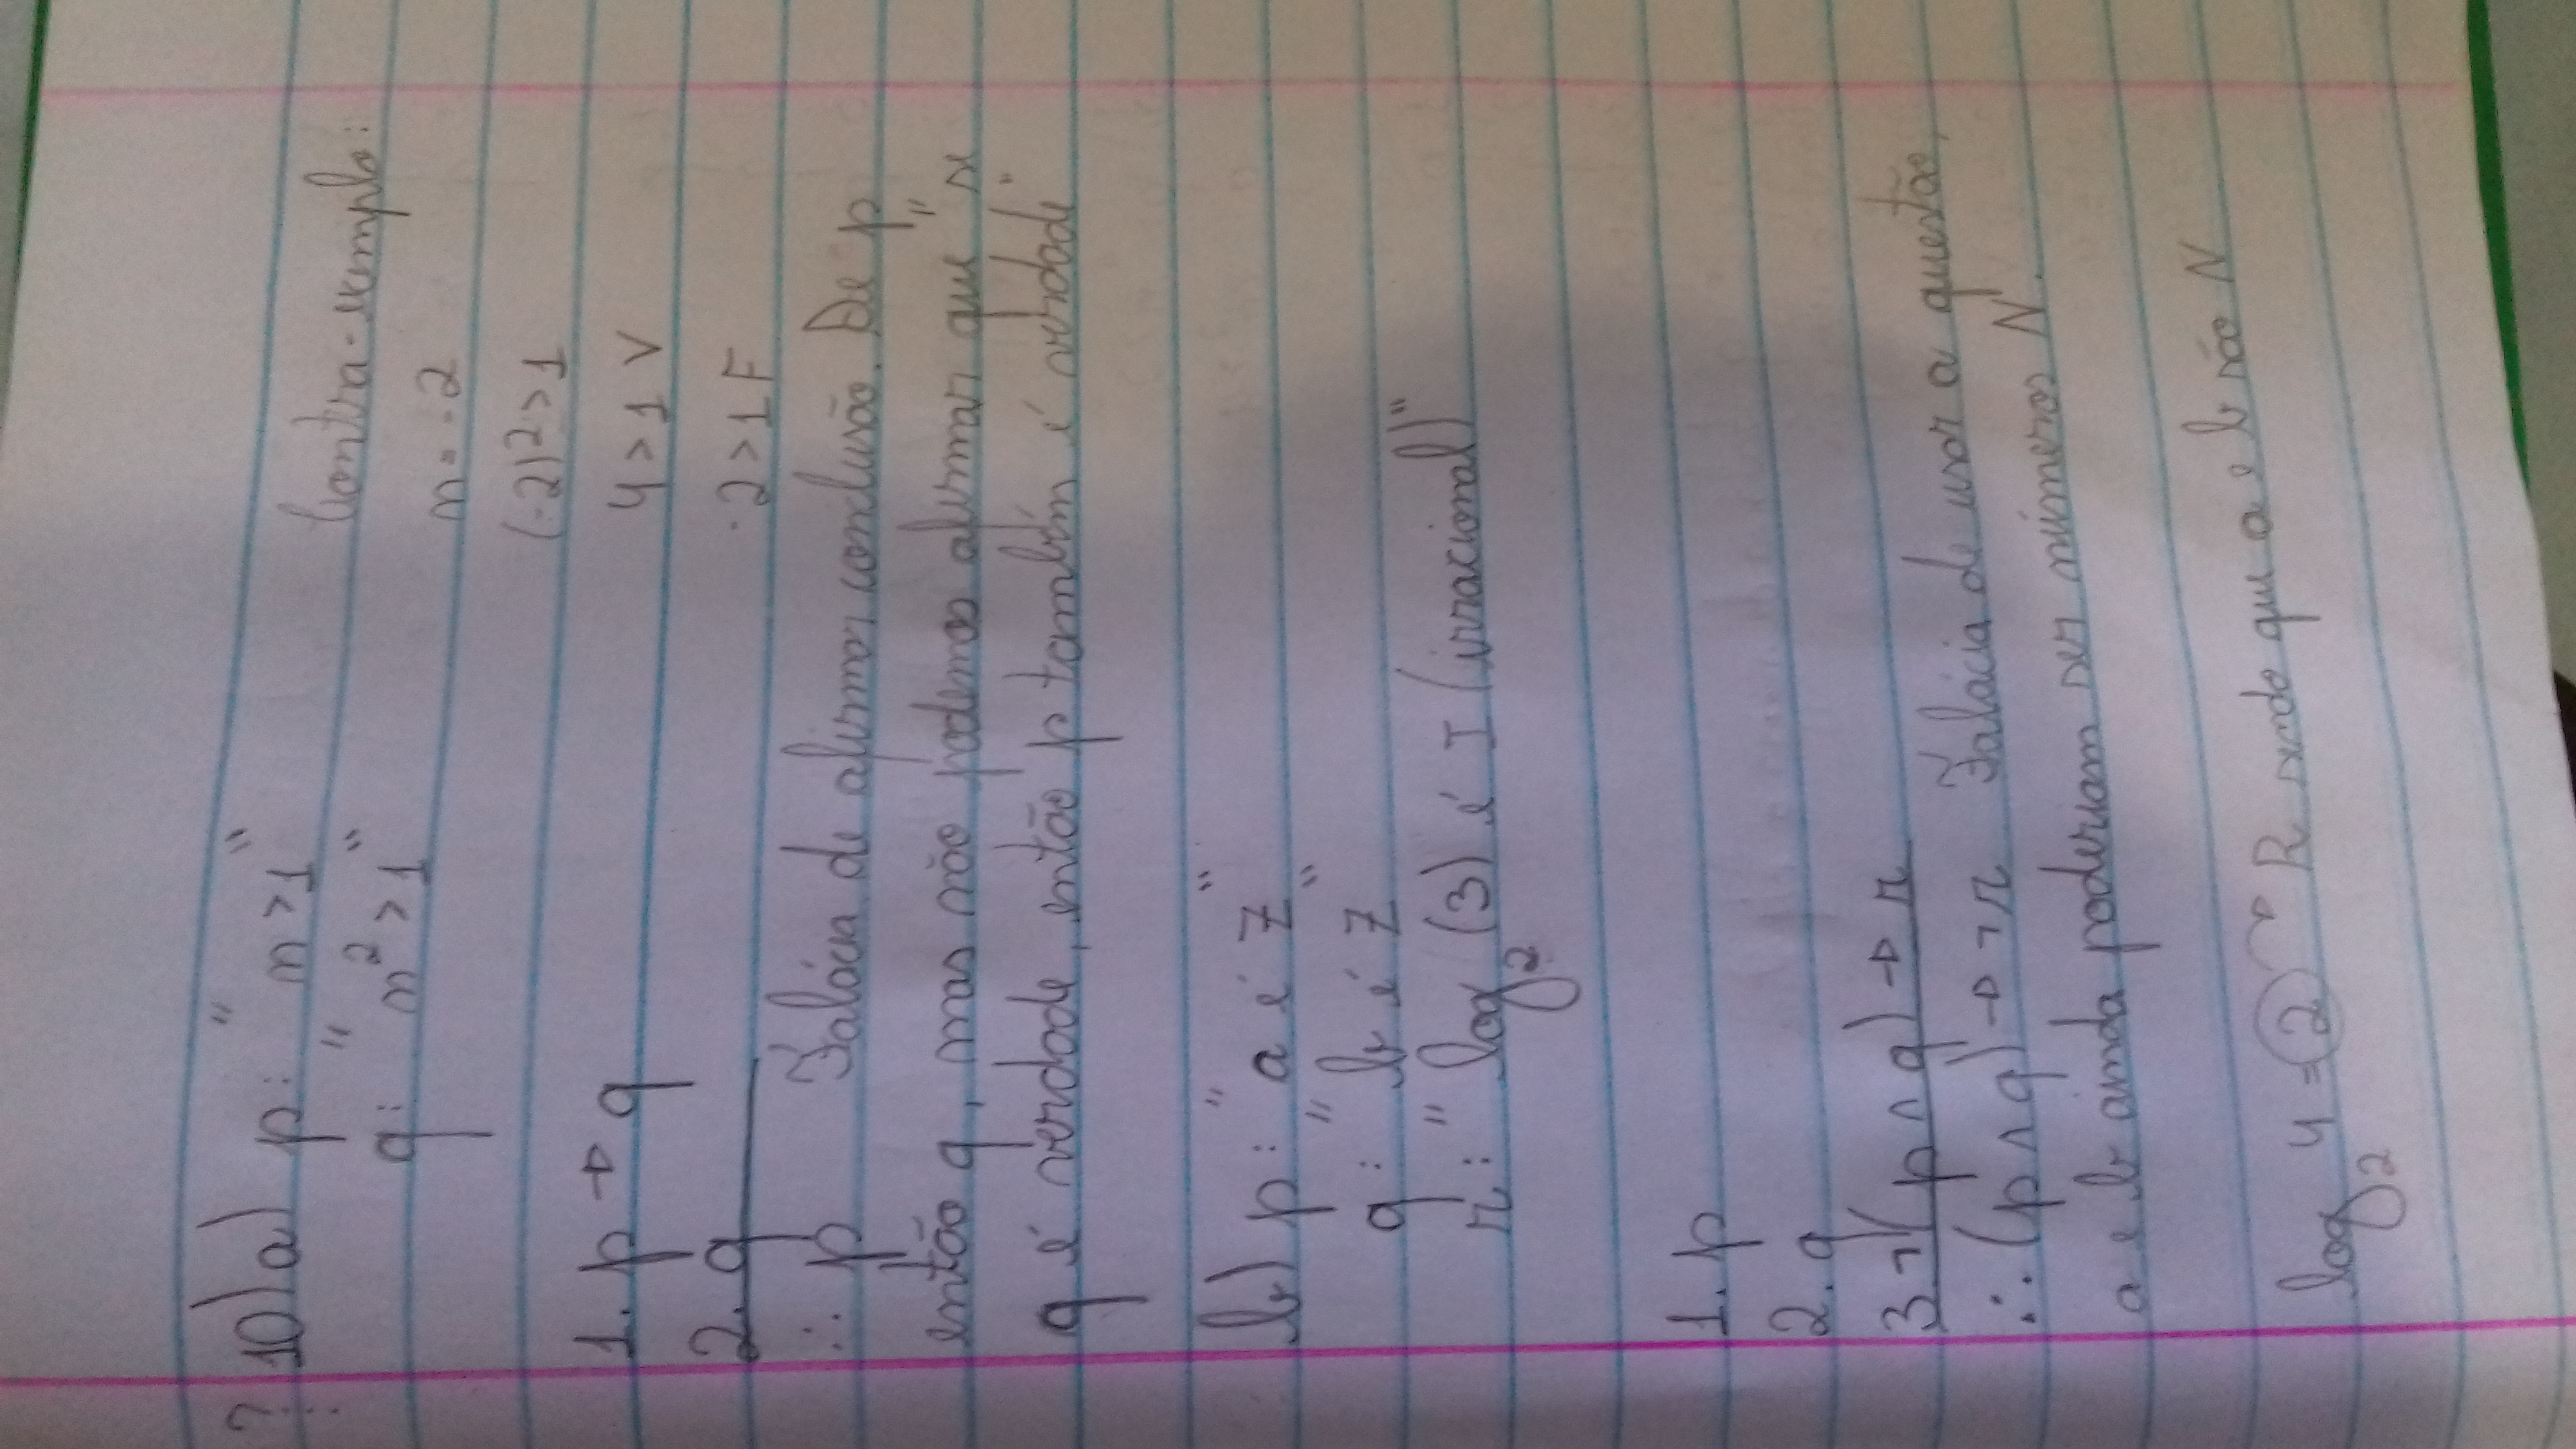 ? 10) a) p: "n > 1"
q: "n² > 1"
Contra-exemplo:
n = -2
(-2)² > 1
4 > 1 V
-2 > 1 F
1. p → q
2. q
∴ p Falácia de afirmar conclusão. De p
então q, mas não podemos afirmar que "se
q é verdade, então p também é verdade"
b) p: "a é Z"
q: "b é Z"
r: "log₂ (3) é I (irracional)"
1. p
2. q
3 ¬(p ∧ q) → r
∴ (p ∧ q) → ¬r Falácia de usar a questão,
a e b ainda poderiam ser números N.
log₂ 4 = 2 → R sendo que a e b são N